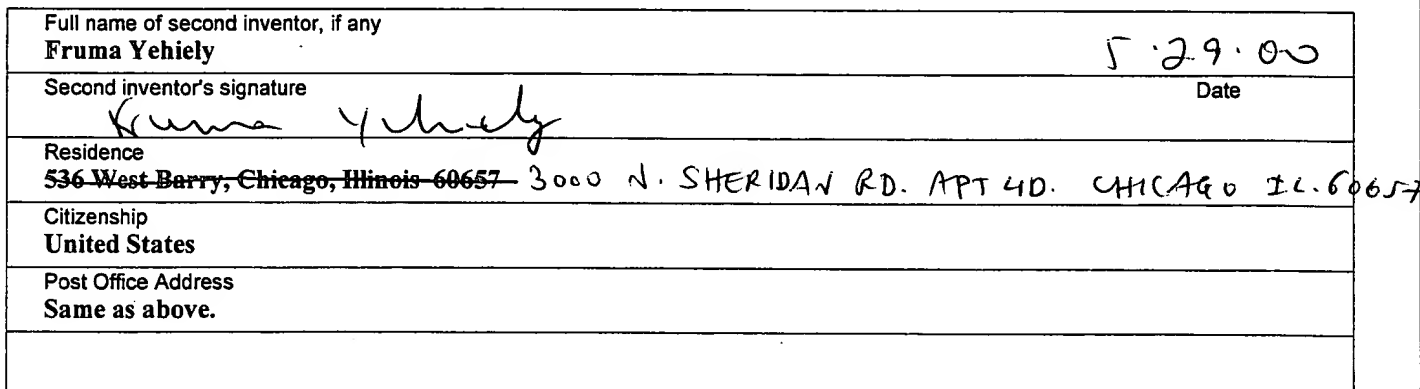 Full name of second inventor, if any
Fruma Yehiely 5·29·00
Second inventor's signature Date
Fruma Yehiely
Residence
536 West Barry, Chicago, Illinois 60657 3000 N. SHERIDAN RD. APT 4D. CHICAGO IL. 60657
Citizenship
United States
Post Office Address
Same as above.